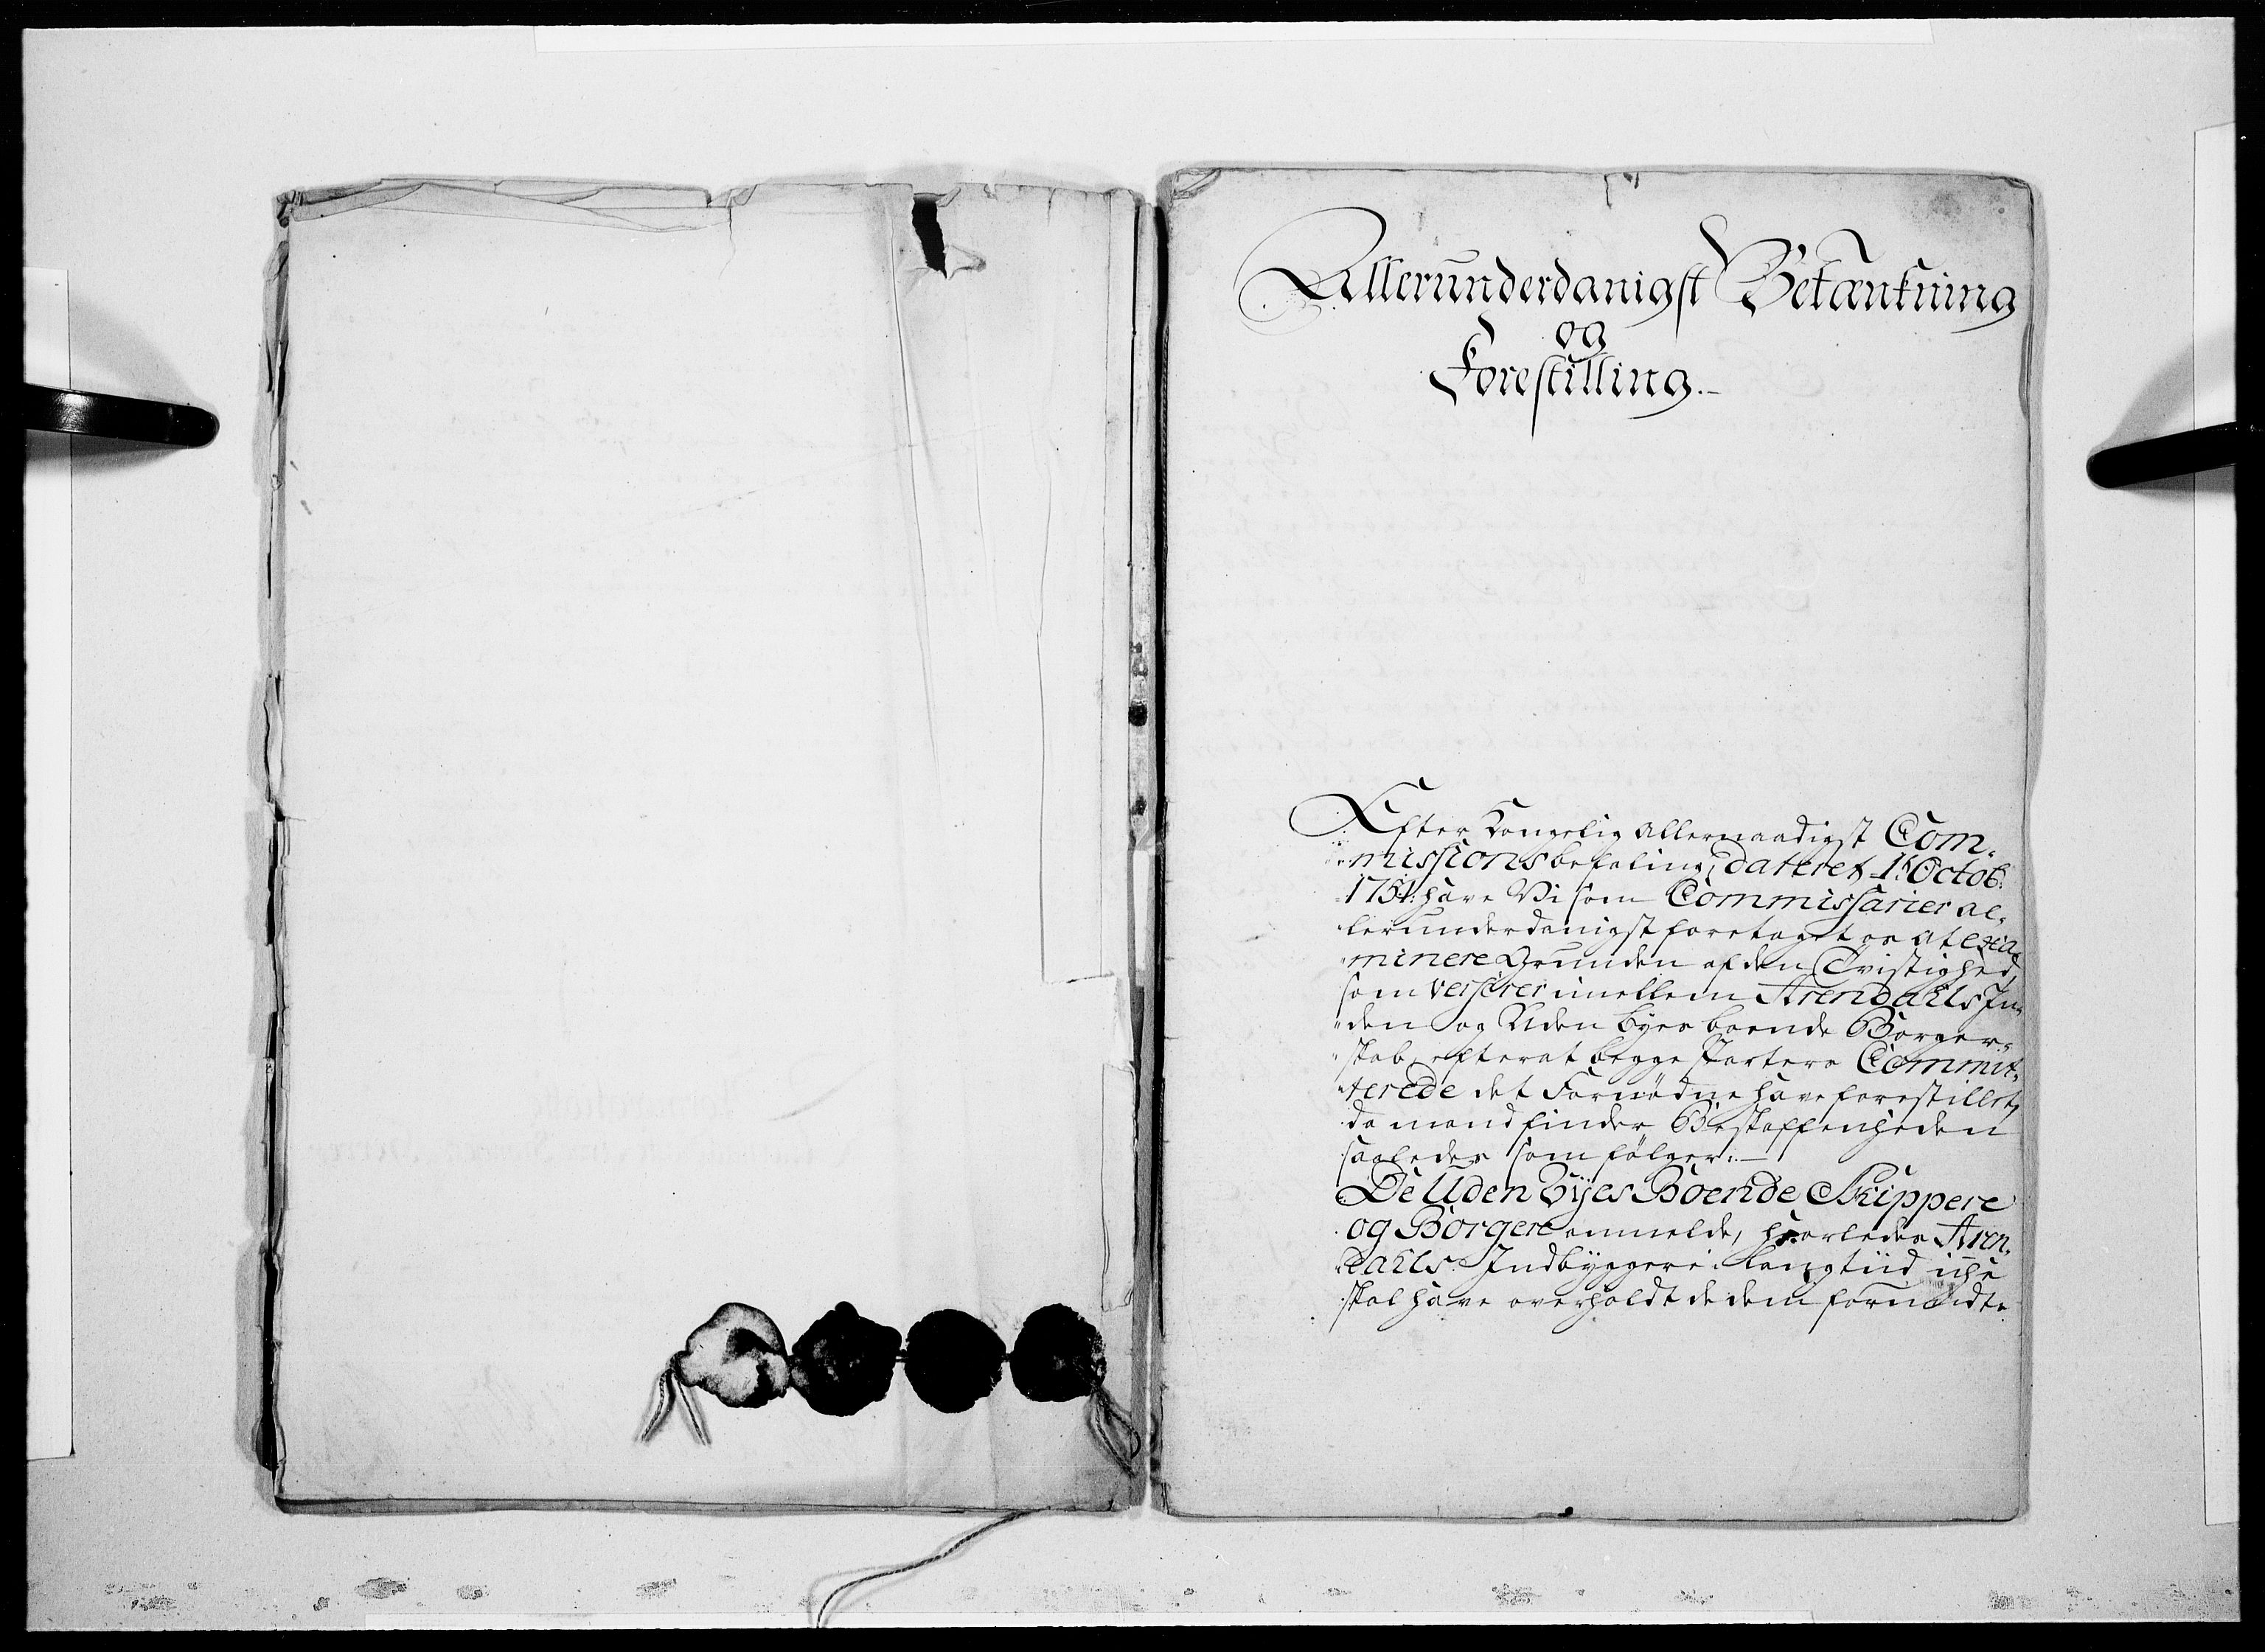 Allerunderdanigst Betænkning
og
Forestilling.
Efter Kongelig allernaadigst Com-
missions befaling, dateret 1t Octob:
1751: have Vi som Commissarier al-
lerunderdanigst foretaget os at exa-
minere Grunden af den Tvistighed,
som verserer imellem Arendahls In-
den og Uden byes boende Borger-
skab, efter at begge Parters Commit-
terede det Fornødne have forestillet,
da mand finder Beskaffenheden
saaledes som følger:
De Uden Byes Boende Skippere
og Borgere anmelde, hvorledes Aren-
dahls Indbyggere i lang tiid iche
skal have overholdt de dem forundte